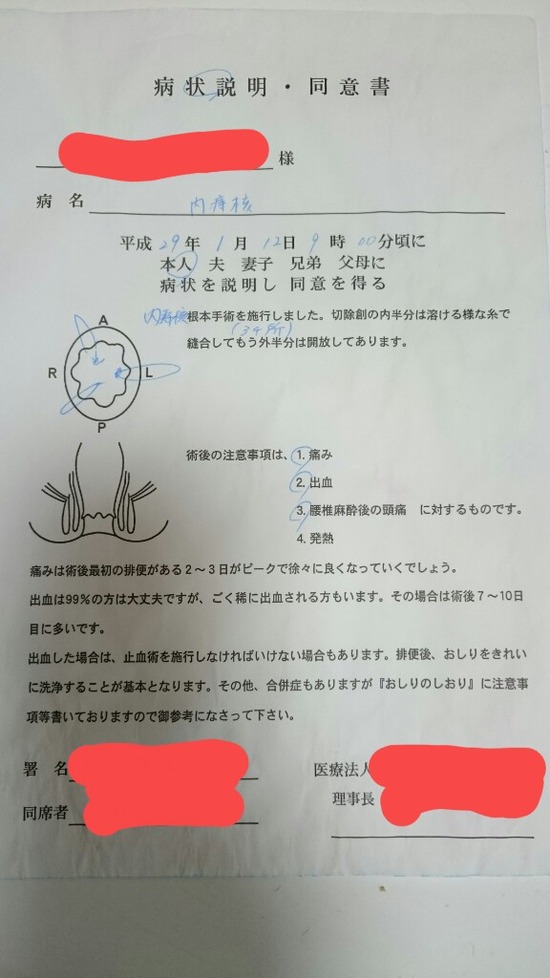 病状説明・同意書
様
病名 内痔核
平成29年1月12日9時00分頃に
本人 夫 妻子 兄弟 父母に
病状を説明し 同意を得る
内痔核根本手術を施行しました。切除創の内半分は溶ける様な糸で
(3ヶ所)
縫合してもう外半分は開放してあります。
A
R L
P
術後の注意事項は、1. 痛み
2. 出血
3. 腰椎麻酔後の頭痛 に対するものです。
4. 発熱
痛みは術後最初の排便がある2〜3日がピークで徐々に良くなっていくでしょう。
出血は99%の方は大丈夫ですが、ごく稀に出血される方もいます。その場合は術後7〜10日
目に多いです。
出血した場合は、止血術を施行しなければいけない場合もあります。排便後、おしりをきれい
に洗浄することが基本となります。その他、合併症もありますが『おしりのしおり』に注意事
項等書いておりますので御参考になさって下さい。
署名 医療法人
理事長
同席者